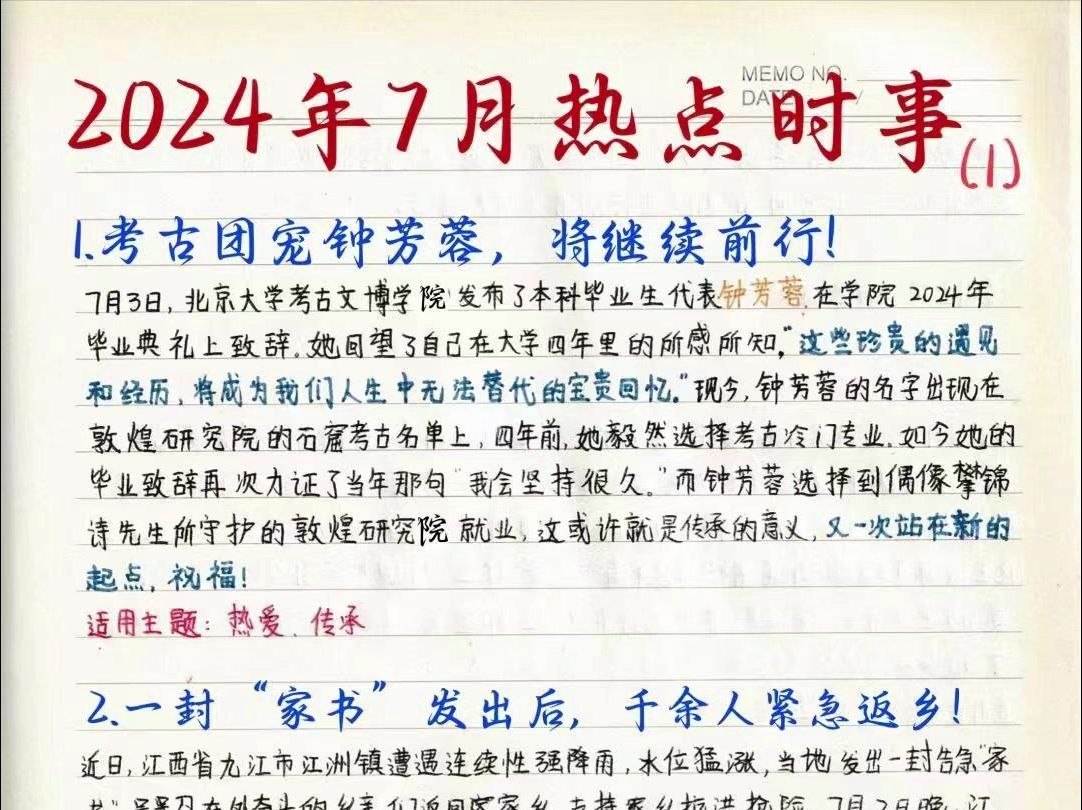 MEMO NO.
DATE / /
2024年7月热点时事(1)
1.考古团宠钟芳蓉，将继续前行!
7月3日,北京大学考古文博学院发布了本科毕业生代表钟芳蓉在学院2024年
毕业典礼上致辞。她回望了自己在大学四年里的所感所知,“这些珍贵的遇见
和经历,将成为我们人生中无法替代的宝贵回忆。”现今,钟芳蓉的名字出现在
敦煌研究院的石窟考古名单上,四年前,她毅然选择考古冷门专业。如今她的
毕业致辞再次力证了当年那句“我会坚持很久。”而钟芳蓉选择到偶像攀锦
诗先生所守护的敦煌研究院就业,这或许就是传承的意义,又一次站在新的
起点,祝福!
适用主题:热爱、传承
2.一封“家书”发出后，千余人紧急返乡!
近日,江西省九江市江洲镇遭遇连续性强降雨,水位猛涨,当地发出一封告急“家